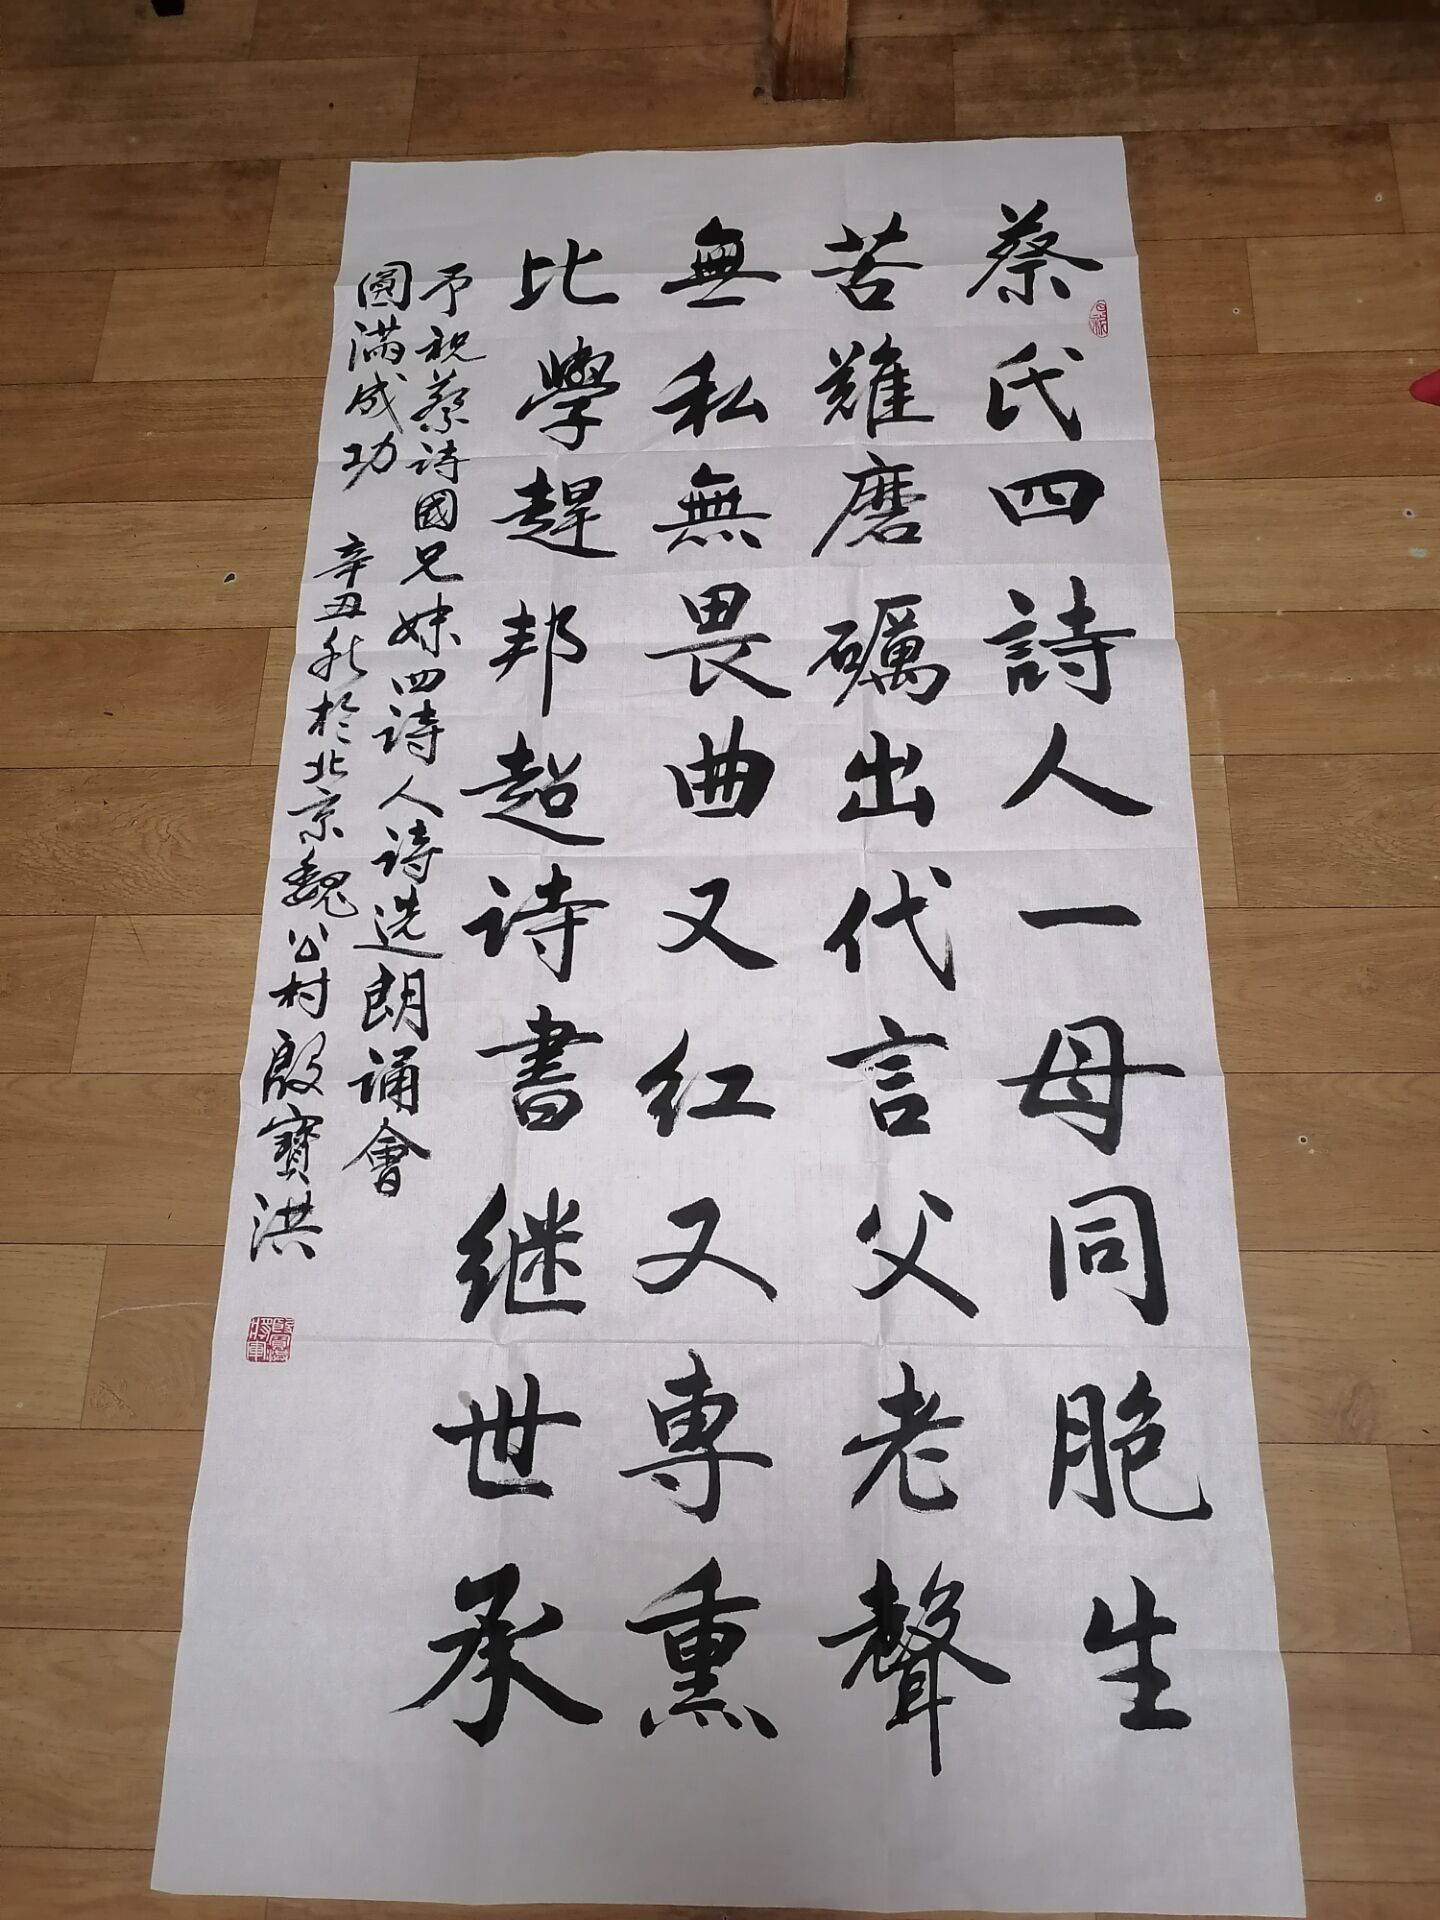 蔡氏四詩人一母同胞生
苦難磨礪出代言父老聲
無私無畏曲又红又専熏
比學趕邦超诗書继世承
予祝蔡诗國兄妹四诗人诗选朗诵會
圓满成功
辛丑秋於北京魏公村殷寶洪